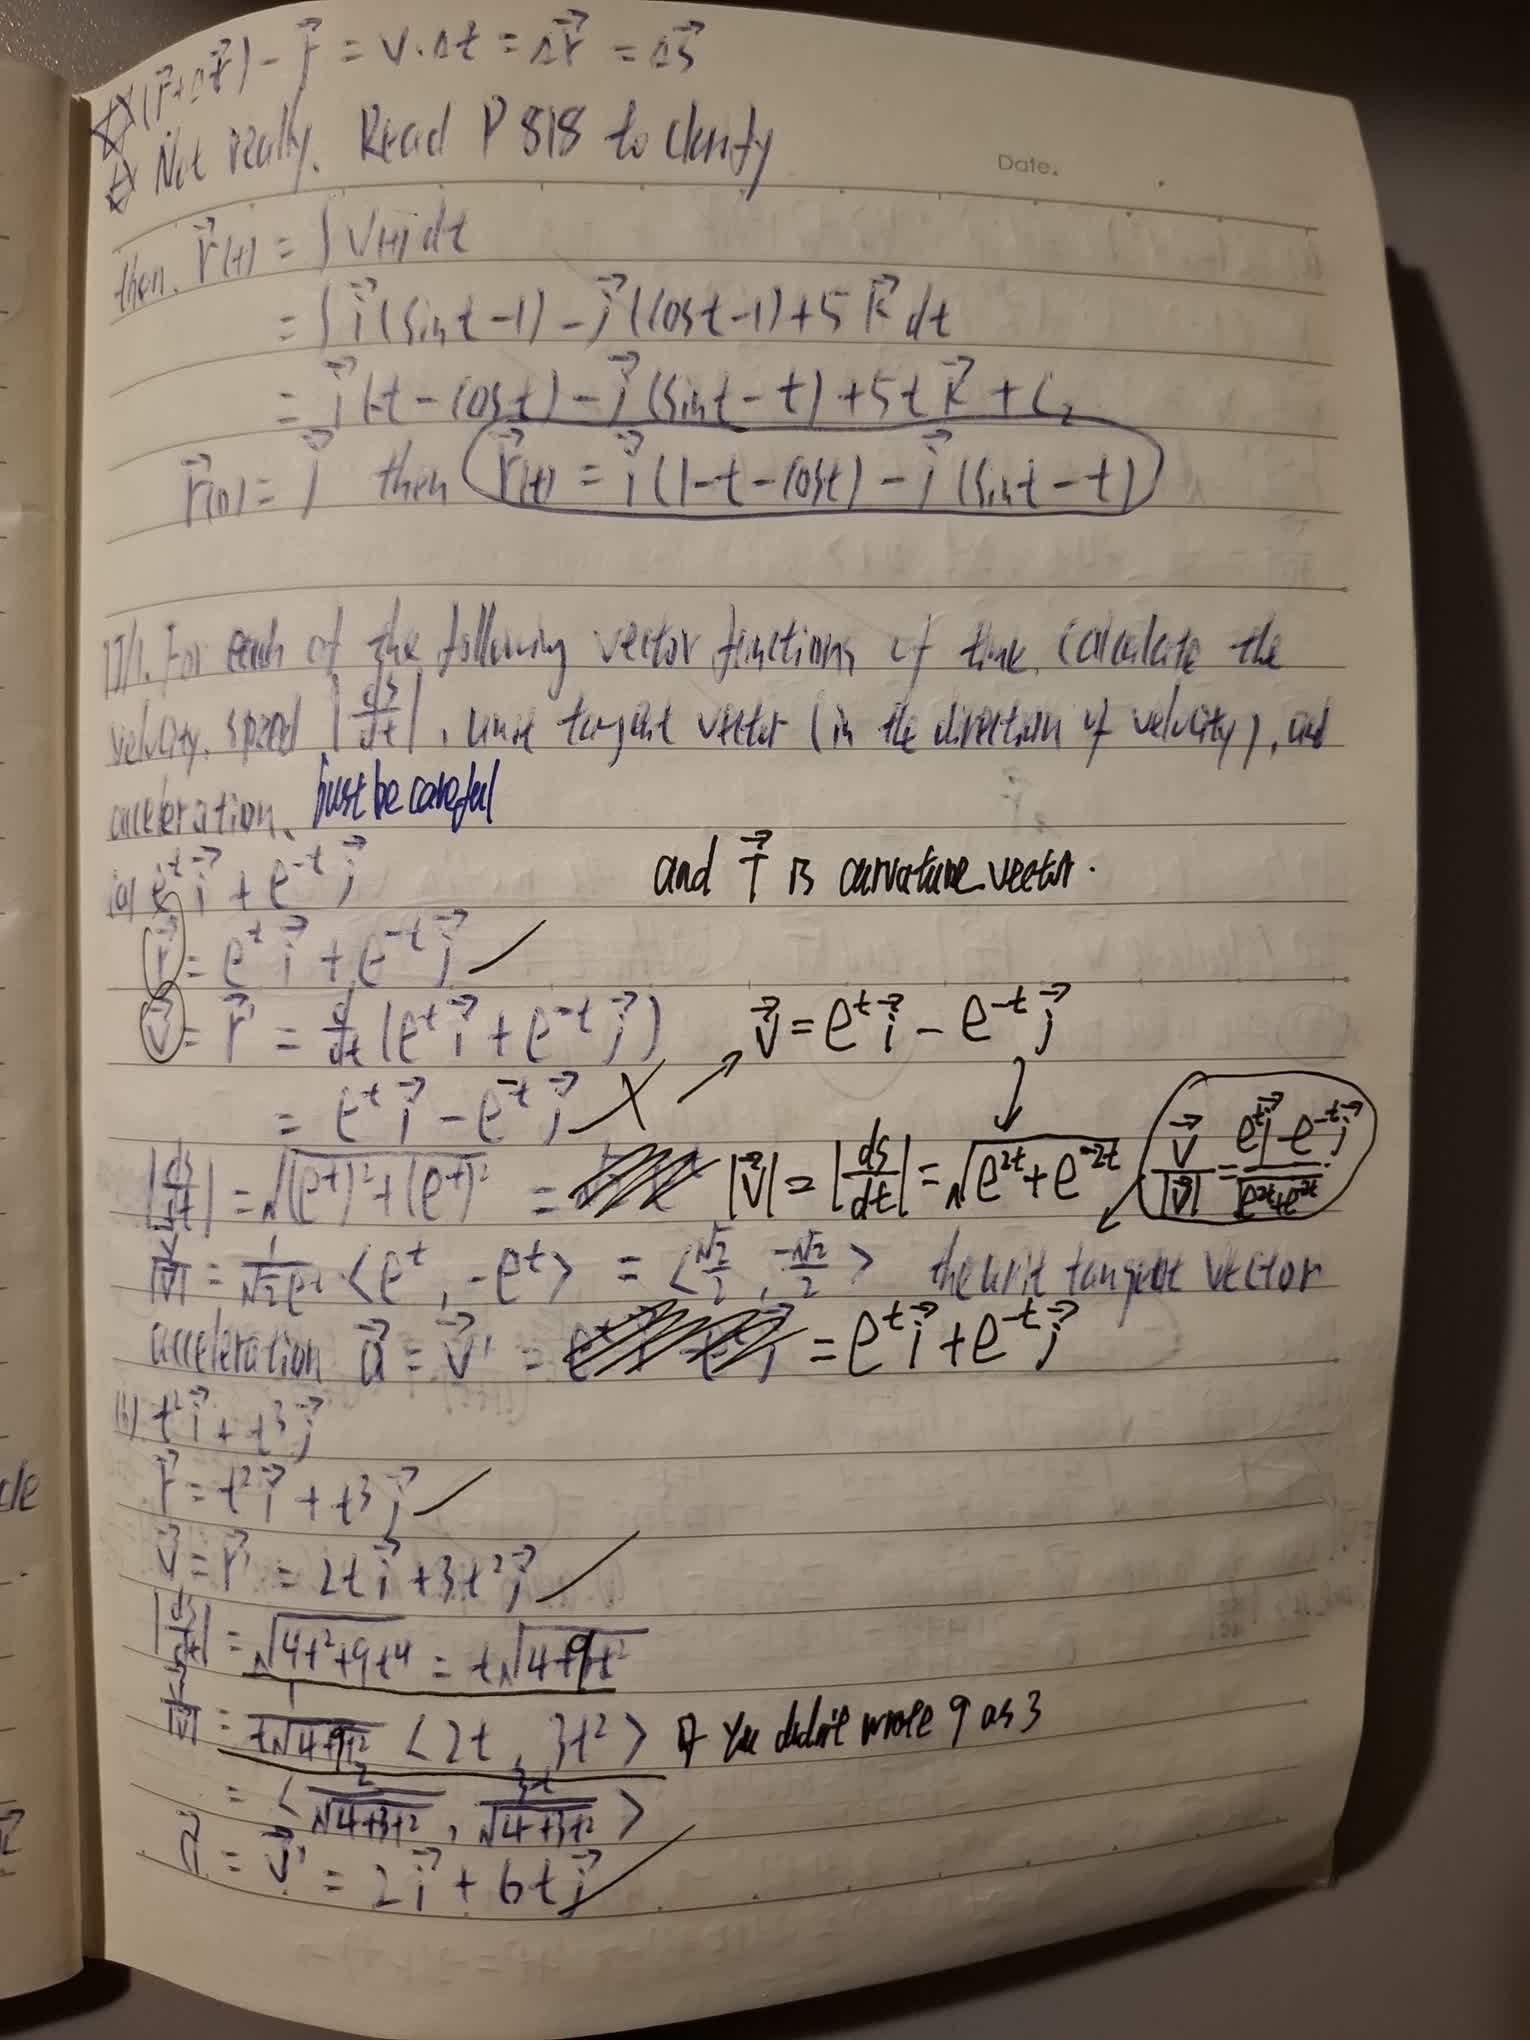 (r⃗+Δr⃗) - r⃗ = v·Δt = Δr⃗ = Δs⃗
Not really. Read P 818 to clarify
Date.
then. r⃗(t) = ∫ v(t) dt
= ∫ i⃗ (sint-1) - j⃗ (cost-1) + 5 k⃗ dt
= i⃗ (-t - cost) - j⃗ (sint - t) + 5t k⃗ + C₂
r⃗(0) = j⃗ then r⃗(t) = i⃗ (1-t-cost) - j⃗ (sint-t)
For each of the following vector functions of time, calculate the
velocity, speed |ds/dt|, unit tangent vector (in the direction of velocity), and
acceleration. Just be careful
(a) e^t i⃗ + e^-t j⃗ and T⃗ is curvature vector.
r⃗ = e^t i⃗ + e^-t j⃗ ✓
v⃗ = r⃗' = d/dt (e^t i⃗ + e^-t j⃗) v⃗ = e^t i⃗ - e^-t j⃗
= e^t i⃗ - e^-t j⃗ X ↗
|ds/dt| = √((e^t)² + (e^t)²) = |v⃗| = |ds/dt| = √(e^2t + e^-2t) v⃗/|v⃗| = (e^t i⃗ - e^-t j⃗)/√(e^2t + e^-2t)
v⃗/|v⃗| = 1/(√2 e^t) <e^t, -e^t> = <√2/2, -√2/2> the unit tangent vector
acceleration a⃗ = v⃗' = = e^t i⃗ + e^-t j⃗
(b) t² i⃗ + t³ j⃗
r⃗ = t² i⃗ + t³ j⃗ ✓
v⃗ = r⃗' = 2t i⃗ + 3t² j⃗ ✓
|ds/dt| = √(4t²+9t⁴) = t√(4+9t²)
v⃗/|v⃗| = 1/(t√(4+9t²)) <2t, 3t²> if you didn't wrote 9 as 3
= <2/√(4+3t²), 3t/√(4+3t²)>
a⃗ = v⃗' = 2 i⃗ + 6t j⃗ ✓